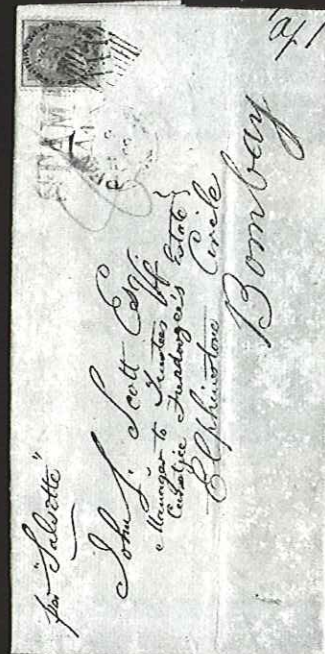 per "Salsette"
John J. Scott Esqr
Manager to Trustees of
Cursetjee Furdoonjee's Estate
Elphinstone Circle
Bombay
STEAM